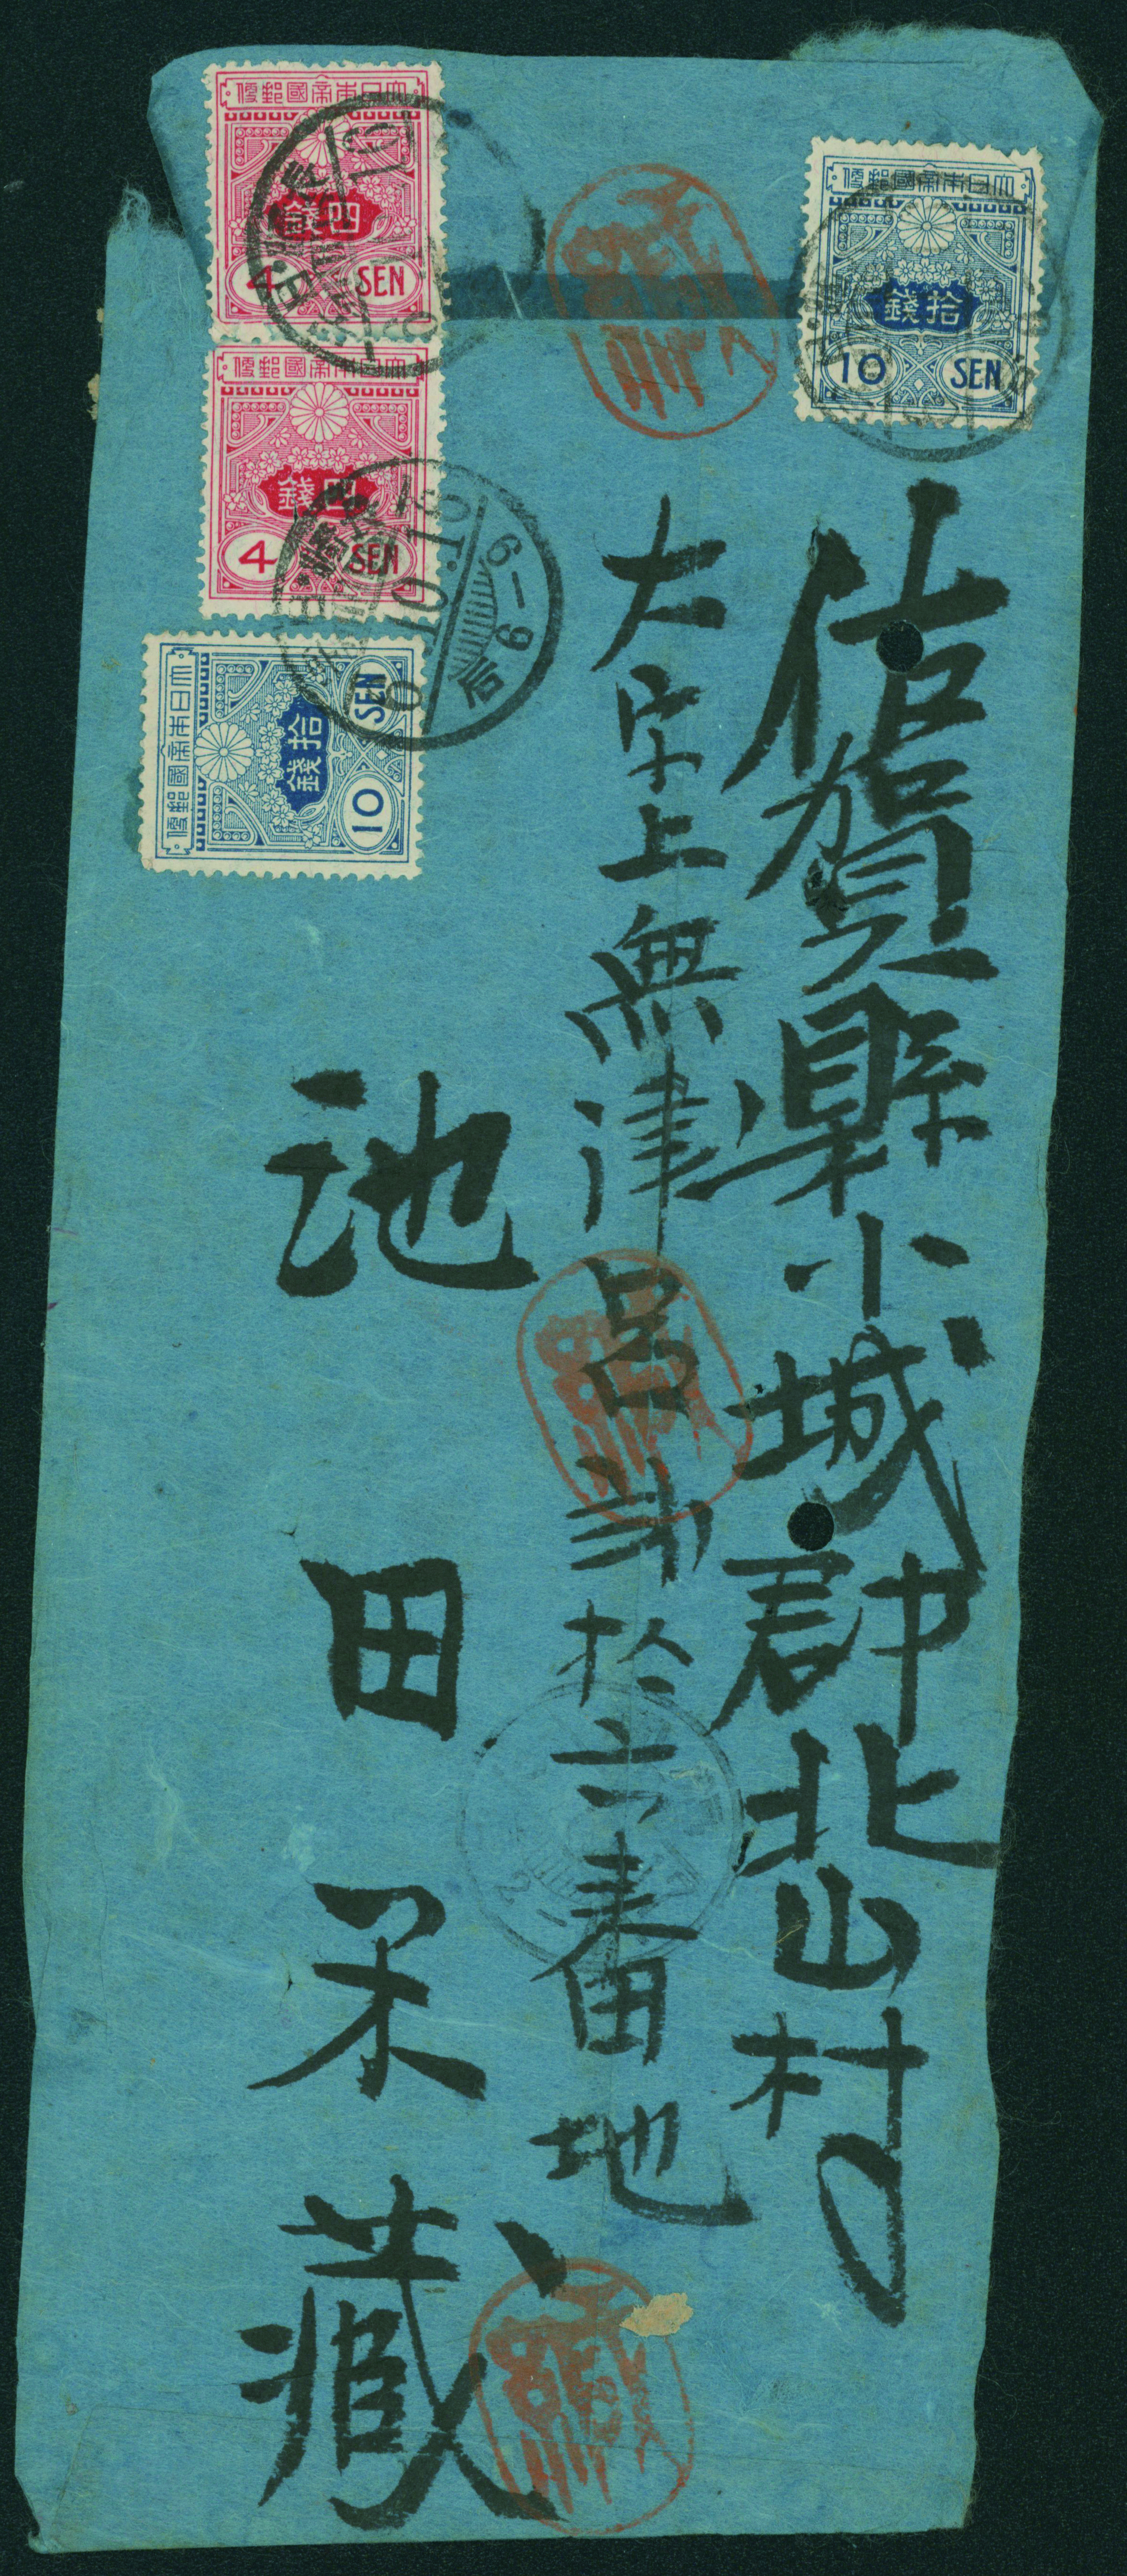 佐賀縣小城郡北山村
大字上無津呂弐拾六番地
池田米藏
大日本帝國郵便
四錢
4 SEN
大日本帝國郵便
四錢
4 SEN
大日本帝國郵便
拾錢
10 SEN
大日本帝國郵便
拾錢
10 SEN
10.10.16
后6-9